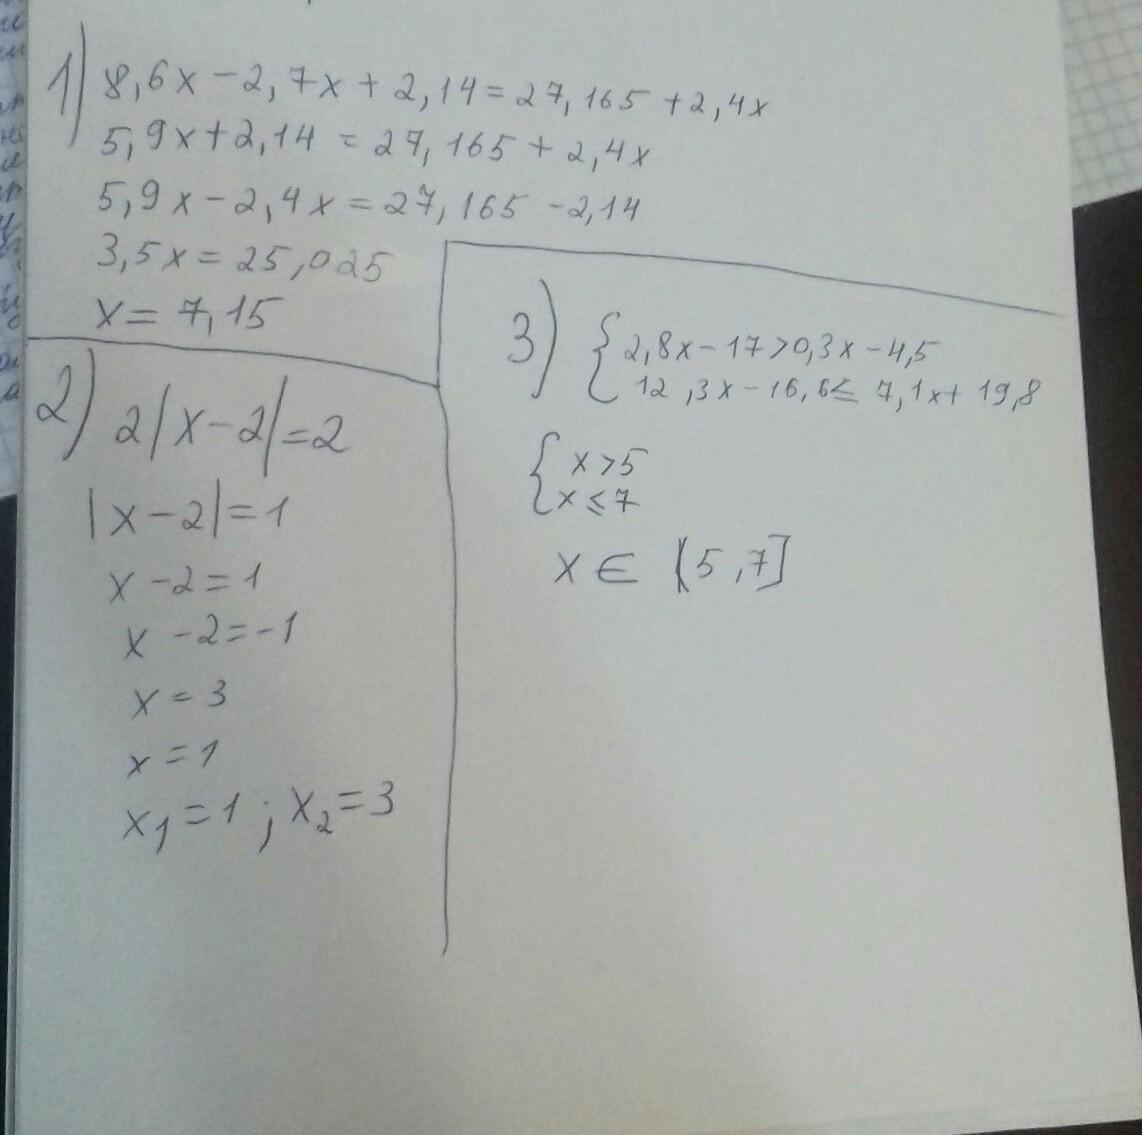 1) 8,6x-2,7x+2,14=27,165+2,4x
5,9x+2,14=27,165+2,4x
5,9x-2,4x=27,165-2,14
3,5x=25,025
x=7,15
2) 2|x-2|=2
|x-2|=1
x-2=1
x-2=-1
x=3
x=1
x₁=1; x₂=3
3) { 2,8x-17>0,3x-4,5
12,3x-16,6≤7,1x+19,8
{ x>5
x≤7
x∈(5,7]